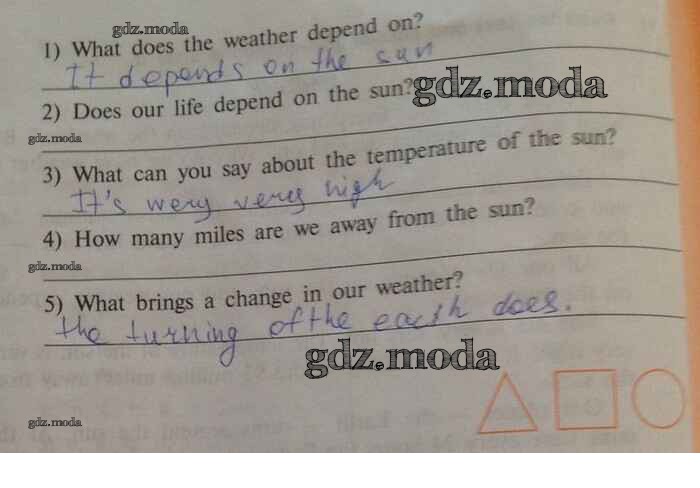 gdz.moda
1) What does the weather depend on?
It depends on the sun
2) Does our life depend on the sun?
gdz.moda
gdz.moda
3) What can you say about the temperature of the sun?
It's wery very high
4) How many miles are we away from the sun?
gdz.moda
5) What brings a change in our weather?
the turning of the earth does.
gdz.moda
gdz.moda